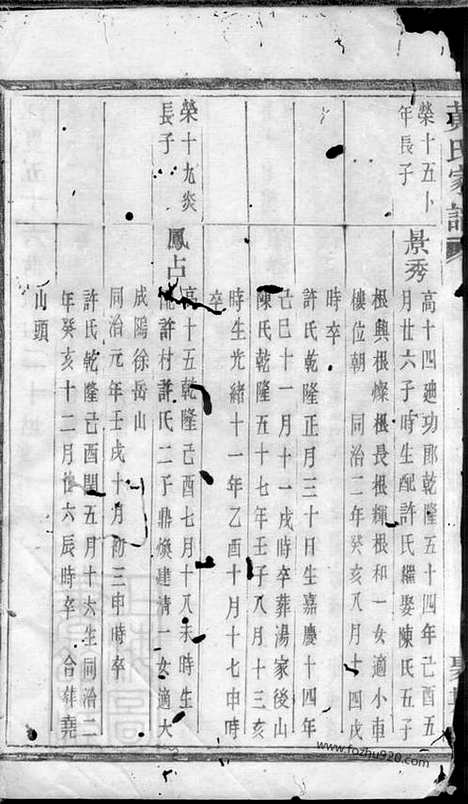 黃氏家譜
榮十五卜
年長子
景秀
高十四廸功郎乾隆五十四年己酉五
月廿六子時生配許氏繼娶陳氏五子
根興根燦根長根輝根和一女適小車
樓位朝 同治二年癸亥八月十四戌
時卒
許氏乾隆正月三十日生嘉慶十四年
己巳十一月十一戌時卒葬湯家後山
陳氏乾隆五十七年壬子八月十三亥
時生光緒十一年乙酉十月十七申時
卒
榮十九炎
長子
鳳占
高十五乾隆己酉七月十八未時生
配許村許氏二子鼎煥建清一女適大
成隖徐岳山
同治元年壬戌十月初三申時卒
許氏乾隆己酉閏五月十六生同治二
年癸亥十二月廿六辰時卒 合葬堯
山頭
www.fozhu920.com